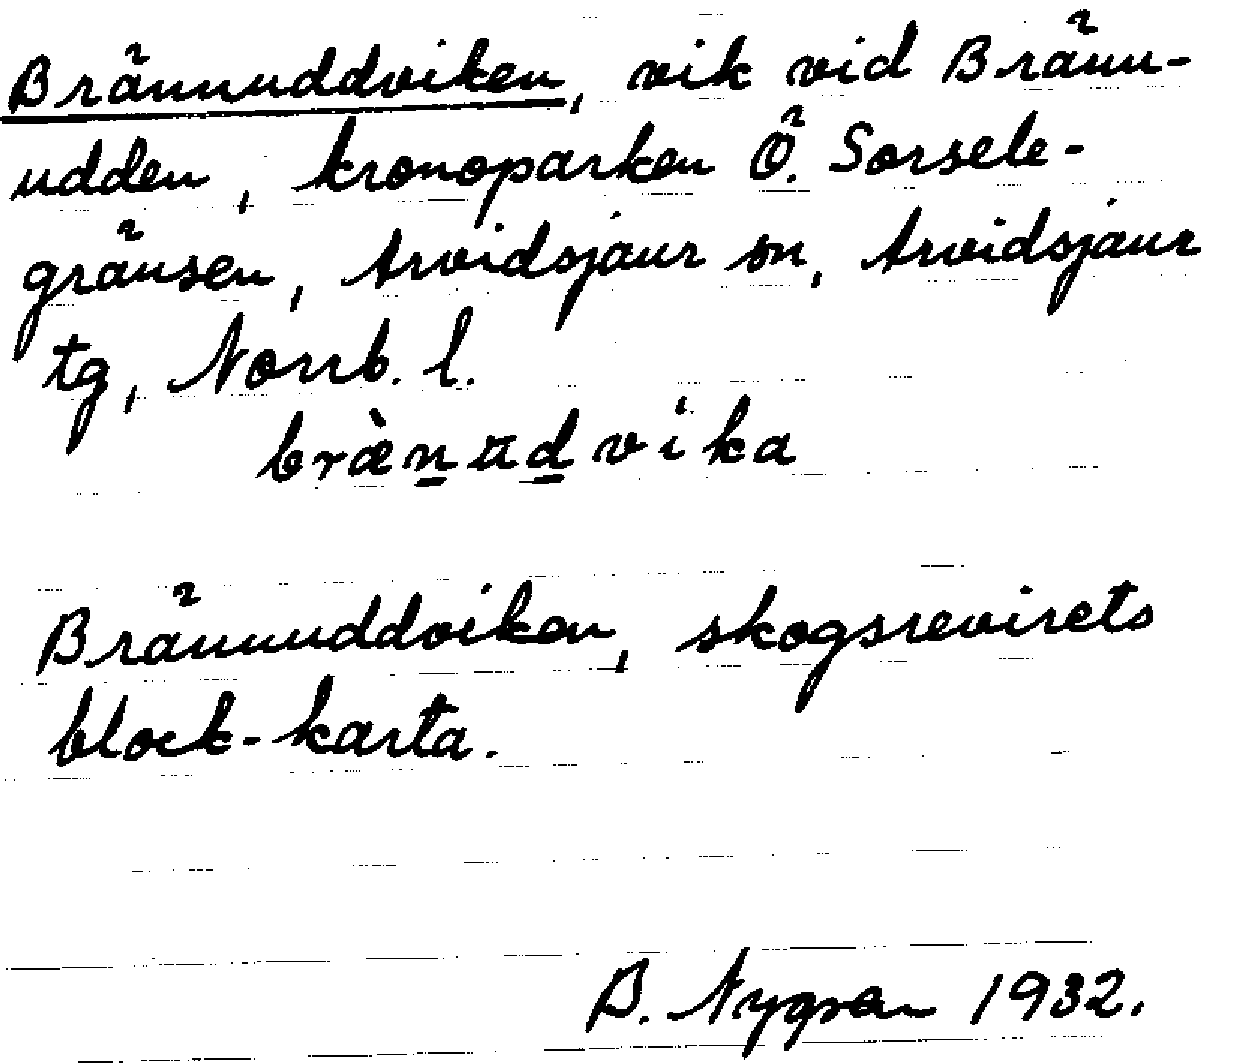 Brännuddviken, vik vid Bränn-
udden, kronoparken Ö. Sorsele-
gränsen, Arvidsjaur sn, Arvidsjaur
tg, Norrb. l.
brænudvika
Brännuddviken, skogsrevirets
block-karta.
B. Nygren 1932.